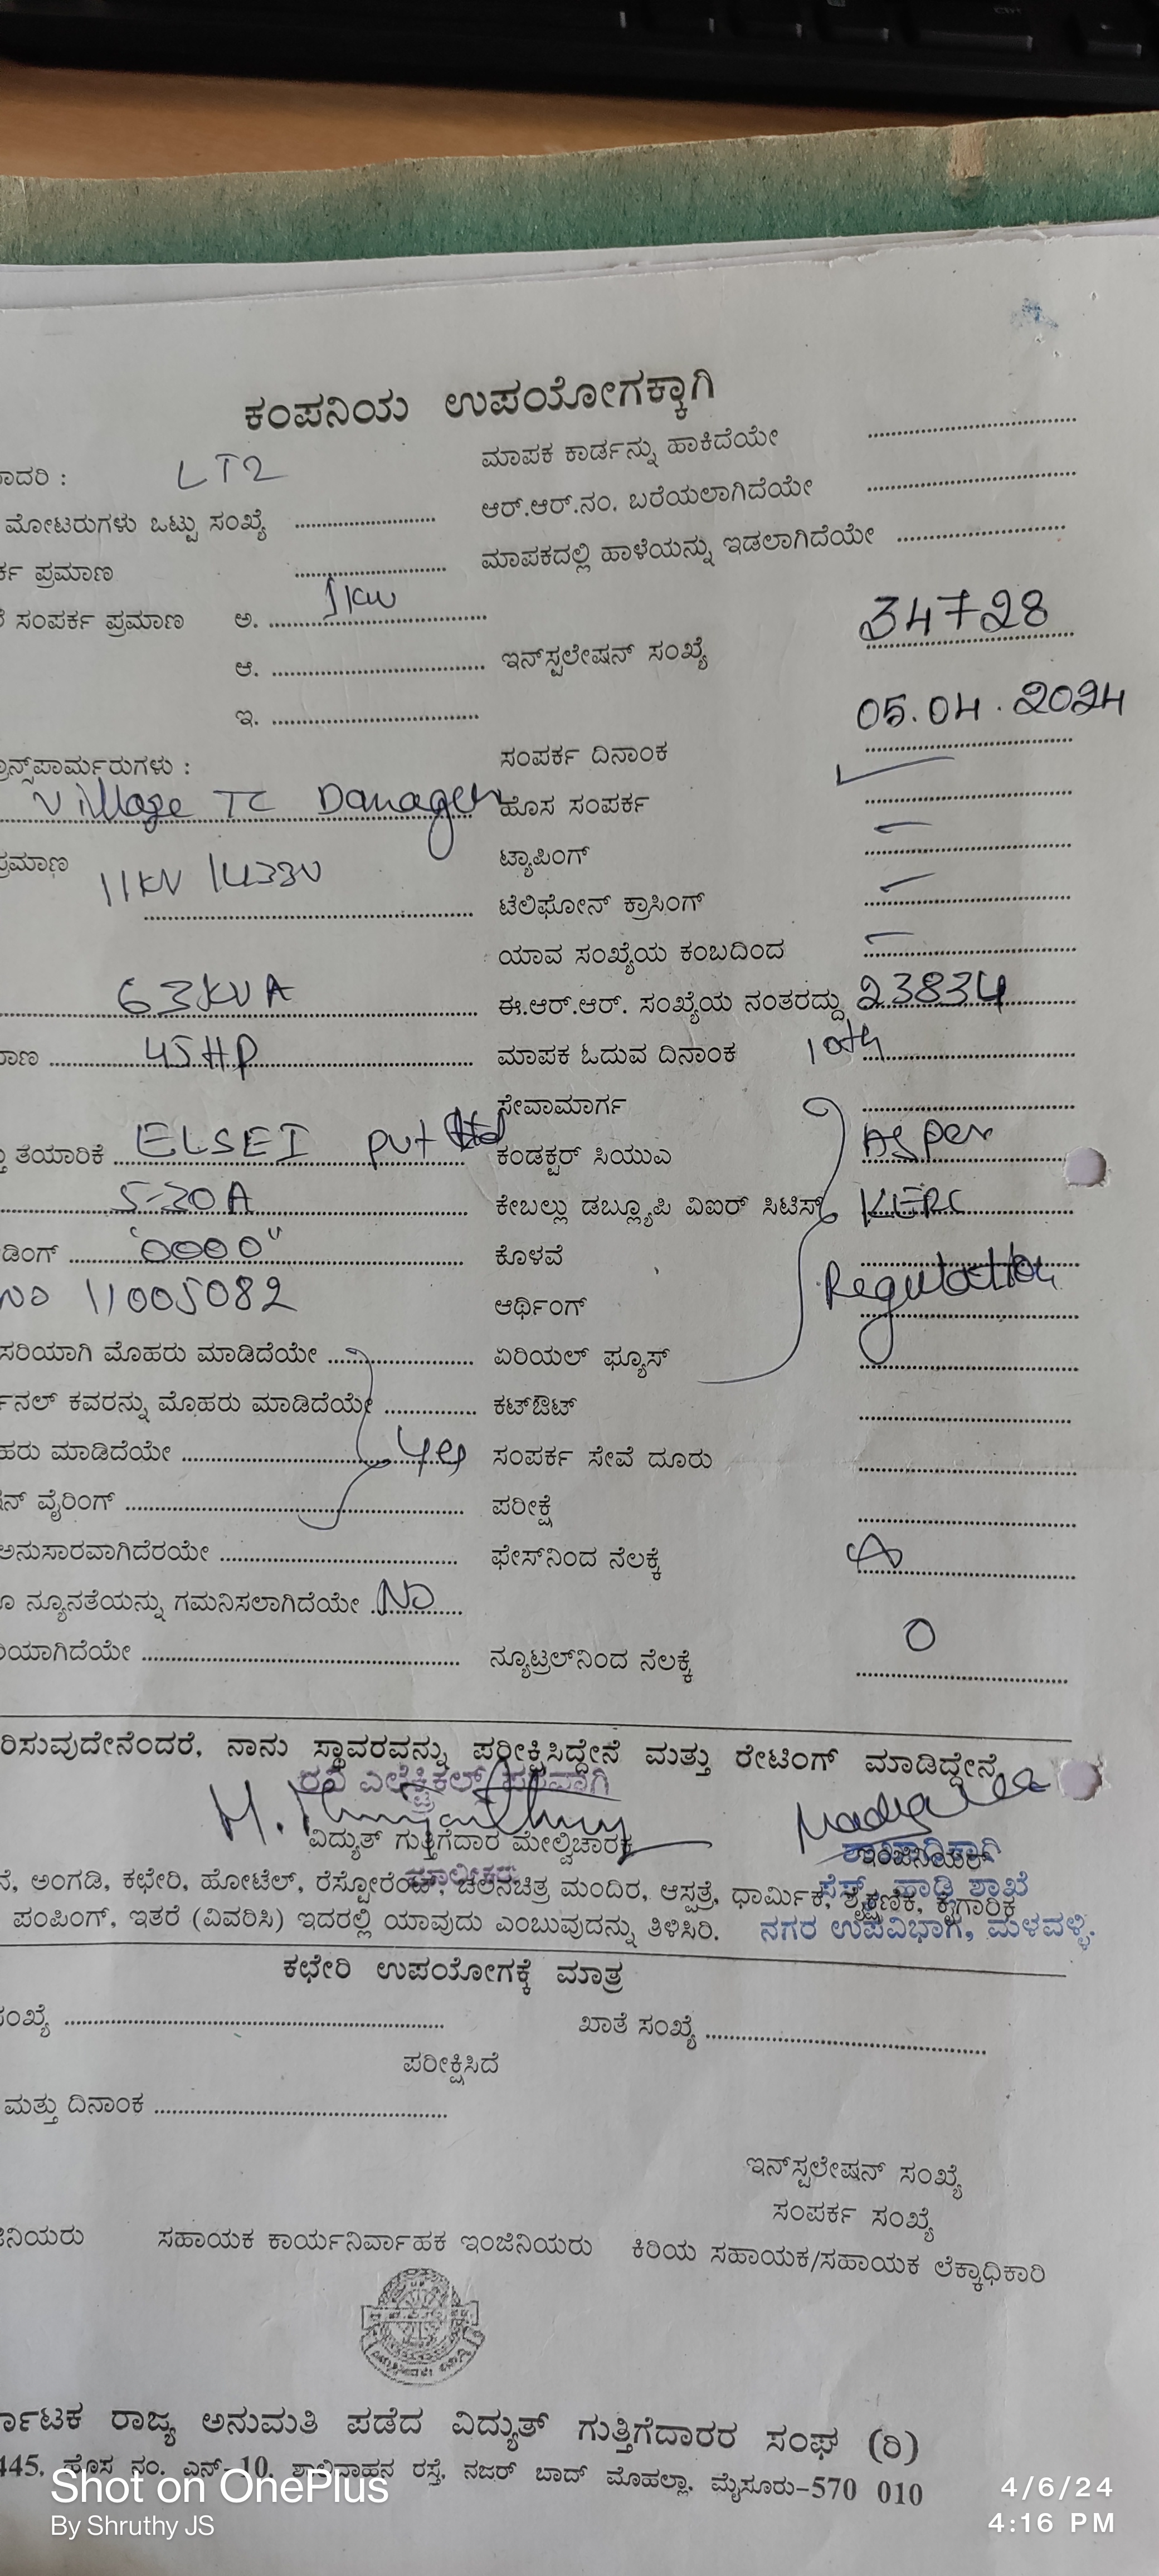 ಕಂಪನಿಯ ಉಪಯೋಗಕ್ಕಾಗಿ
ಾದರಿ : LT2 ಮಾಪಕ ಕಾರ್ಡನ್ನು ಹಾಕಿದೆಯೇ
ಮೋಟರುಗಳು ಒಟ್ಟು ಸಂಖ್ಯೆ ಆರ್.ಆರ್.ನಂ. ಬರೆಯಲಾಗಿದೆಯೇ
ರ್ಕ ಪ್ರಮಾಣ ಮಾಪಕದಲ್ಲಿ ಹಾಳೆಯನ್ನು ಇಡಲಾಗಿದೆಯೇ
ಸಂಪರ್ಕ ಪ್ರಮಾಣ ಅ. 1KW
ಆ. ಇನ್‌ಸ್ಟಲೇಷನ್ ಸಂಖ್ಯೆ 34728
ಇ.
ಾನ್ಸ್‌ಪಾರ್ಮರುಗಳು : ಸಂಪರ್ಕ ದಿನಾಂಕ 05.04.2024
Village TC ಹೊಸ ಸಂಪರ್ಕ
ಪ್ರಮಾಣ 11KV ಟ್ಯಾಪಿಂಗ್
ಟೆಲಿಫೋನ್ ಕ್ರಾಸಿಂಗ್
ಯಾವ ಸಂಖ್ಯೆಯ ಕಂಬದಿಂದ
63KVA ಈ.ಆರ್.ಆರ್. ಸಂಖ್ಯೆಯ ನಂತರದ್ದು 23834
ಮಾಣ 45HP ಮಾಪಕ ಓದುವ ದಿನಾಂಕ 10th
ಸೇವಾಮಾರ್ಗ
ತ್ತು ತಯಾರಿಕೆ ELSEI pvt ltd ಕಂಡಕ್ಟರ್ ಸಿಯುಎ As per
5-30A ಕೇಬಲ್ಲು ಡಬ್ಲ್ಯೂಪಿ ವಿಐರ್ ಸಿಟಿಸ್ KERC
ಡಿಂಗ್ "0000" ಕೊಳವೆ Regulation
NO 11005082 ಆರ್ಥಿಂಗ್
ಸರಿಯಾಗಿ ಮೊಹರು ಮಾಡಿದೆಯೇ ಏರಿಯಲ್ ಫ್ಯೂಸ್
ರ್ಮಿನಲ್ ಕವರನ್ನು ಮೊಹರು ಮಾಡಿದೆಯೇ ಕಟ್‌ಔಟ್
ಹರು ಮಾಡಿದೆಯೇ Yes ಸಂಪರ್ಕ ಸೇವೆ ದೂರು
ನ್ ವೈರಿಂಗ್ ಪರೀಕ್ಷೆ
ಅನುಸಾರವಾಗಿದೆರಯೇ ಫೇಸ್‌ನಿಂದ ನೆಲಕ್ಕೆ
ನ್ಯೂನತೆಯನ್ನು ಗಮನಿಸಲಾಗಿದೆಯೇ NO
ರಿಯಾಗಿದೆಯೇ ನ್ಯೂಟ್ರಲ್‌ನಿಂದ ನೆಲಕ್ಕೆ 0
ರಿಸುವುದೇನೆಂದರೆ, ನಾನು ಸ್ಥಾವರವನ್ನು ಪರೀಕ್ಷಿಸಿದ್ದೇನೆ ಮತ್ತು ರೇಟಿಂಗ್ ಮಾಡಿದ್ದೇನೆ
ರವಿ ಎಲೆಕ್ಟ್ರಿಕಲ್ಸ್ ಪರವಾಗಿ
ವಿದ್ಯುತ್ ಗುತ್ತಿಗೆದಾರ ಮೇಲ್ವಿಚಾರಕ ಇಂಜಿನಿಯರ್
ಮಾಲೀಕರು
ಶಾಖಾಧಿಕಾರಿ
ಸೆಸ್ಕ್, ಹಾಡ್ಲಿ ಶಾಖೆ
ನೆ, ಅಂಗಡಿ, ಕಛೇರಿ, ಹೋಟೆಲ್, ರೆಸ್ಟೋರೆಂಟ್, ಚಲನಚಿತ್ರ ಮಂದಿರ, ಆಸ್ಪತ್ರೆ, ಧಾರ್ಮಿಕ, ಶೈಕ್ಷಣಿಕ, ಕೈಗಾರಿಕೆ
ಪಂಪಿಂಗ್, ಇತರೆ (ವಿವರಿಸಿ) ಇದರಲ್ಲಿ ಯಾವುದು ಎಂಬುವುದನ್ನು ತಿಳಿಸಿರಿ. ನಗರ ಉಪವಿಭಾಗ, ಮಳವಳ್ಳಿ.
ಕಛೇರಿ ಉಪಯೋಗಕ್ಕೆ ಮಾತ್ರ
ಸಂಖ್ಯೆ ಖಾತೆ ಸಂಖ್ಯೆ
ಪರೀಕ್ಷಿಸಿದೆ
ಮತ್ತು ದಿನಾಂಕ
ಇನ್‌ಸ್ಟಲೇಷನ್ ಸಂಖ್ಯೆ
ಸಂಪರ್ಕ ಸಂಖ್ಯೆ
ಜಿನಿಯರು ಸಹಾಯಕ ಕಾರ್ಯನಿರ್ವಾಹಕ ಇಂಜಿನಿಯರು ಕಿರಿಯ ಸಹಾಯಕ/ಸಹಾಯಕ ಲೆಕ್ಕಾಧಿಕಾರಿ
ರ್ನಾಟಕ ರಾಜ್ಯ ಅನುಮತಿ ಪಡೆದ ವಿದ್ಯುತ್ ಗುತ್ತಿಗೆದಾರರ ಸಂಘ (ರಿ)
445, ಹೊಸ ನಂ. ಎನ್-10, ಶಾಲಿವಾಹನ ರಸ್ತೆ, ನಜರ್ ಬಾದ್ ಮೊಹಲ್ಲಾ, ಮೈಸೂರು-570 010
Shot on OnePlus 4/6/24
By Shruthy JS 4:16 PM